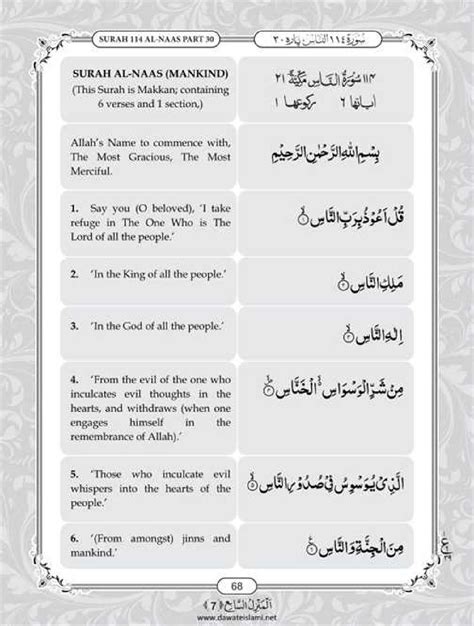 SURAH 114 AL-NAAS PART 30
سُوْرَة ١١٤ اَلنَّاس پاره ٣٠
SURAH AL-NAAS (MANKIND)
(This Surah is Makkan; containing
6 verses and 1 section,)
١١٤ سُوْرَةُ النَّاسِ مَكِّيَّةٌ ٢١
اٰیاتها ٦ رکوعها ١
Allah's Name to commence with,
The Most Gracious, The Most
Merciful.
بِسْمِ اللهِ الرَّحْمٰنِ الرَّحِيْمِ
1. Say you (O beloved), 'I take
refuge in The One Who is The
Lord of all the people.'
قُلْ اَعُوْذُ بِرَبِّ النَّاسِ ۙ﴿۱﴾
2. 'In the King of all the people.'
مَلِكِ النَّاسِ ۙ﴿۲﴾
3. 'In the God of all the people.'
اِلٰهِ النَّاسِ ۙ﴿۳﴾
4. 'From the evil of the one who
inculcates evil thoughts in the
hearts, and withdraws (when one
engages himself in the
remembrance of Allah).'
مِنْ شَرِّ الْوَسْوَاسِ ۙ الْخَنَّاسِ ۪ۙ﴿۴﴾
5. 'Those who inculcate evil
whispers into the hearts of the
people.'
الَّذِيْ يُوَسْوِسُ فِيْ صُدُوْرِ النَّاسِ ۙ﴿۵﴾
6. '(From amongst) jinns and
mankind.'
مِنَ الْجِنَّةِ وَالنَّاسِ ﴿۶﴾
68
اَلْمَنْزِلُ السَّابِع ﴿7﴾
www.dawateislami.net